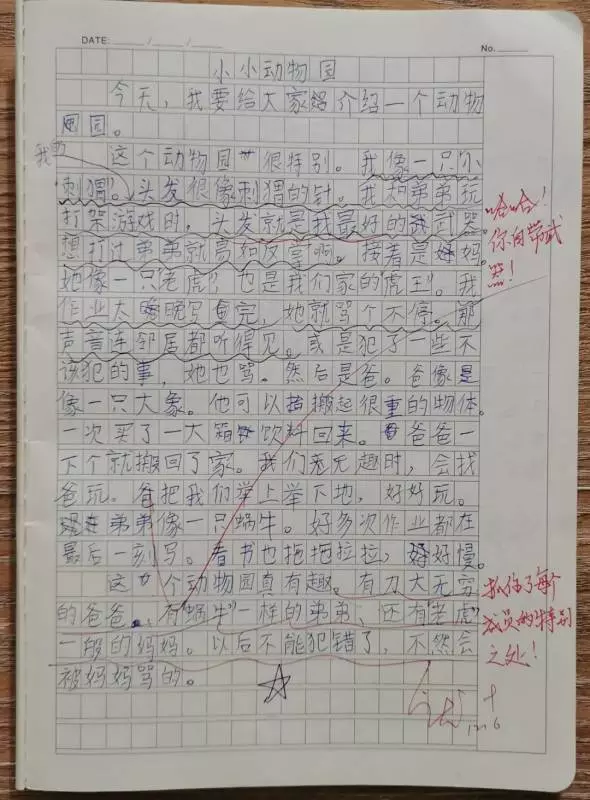 DATE: ____/____/____
No.____
小小动物园
今天,我要给大家介绍一个动物
园。
这个动物园很特别。我像一只“小
刺猬”。头发很像刺猬的针。我和弟弟玩
打架游戏时,头发就是我最好的武器。
想打过弟弟就易如反掌啊。接着是妈妈
她像一只“老虎”,也是我们家的“虎王”。我
作业太晚写完,她就骂个不停。那
声音连邻居都听得见。或是犯了一些不
该犯的事,她也骂。然后是爸。爸像
像一只大象。他可以搬起很重的物体。
一次买了一大箱饮料回来。爸爸一
下个就搬回了家。我们无趣时,会找
爸玩。爸把我们举上举下地,好好玩。
弟弟像一只蜗牛。好多次作业都在
最后一刻写。看书也拖拖拉拉,好慢。
这个动物园真有趣。有力大无穷
的爸爸、有“蜗牛”一样的弟弟、还有“老虎”
一般的妈妈。以后不能犯错了,不然会
被妈妈骂的。
哈哈!
你自带武
器!
抓住了每个
成员的特别
之处!